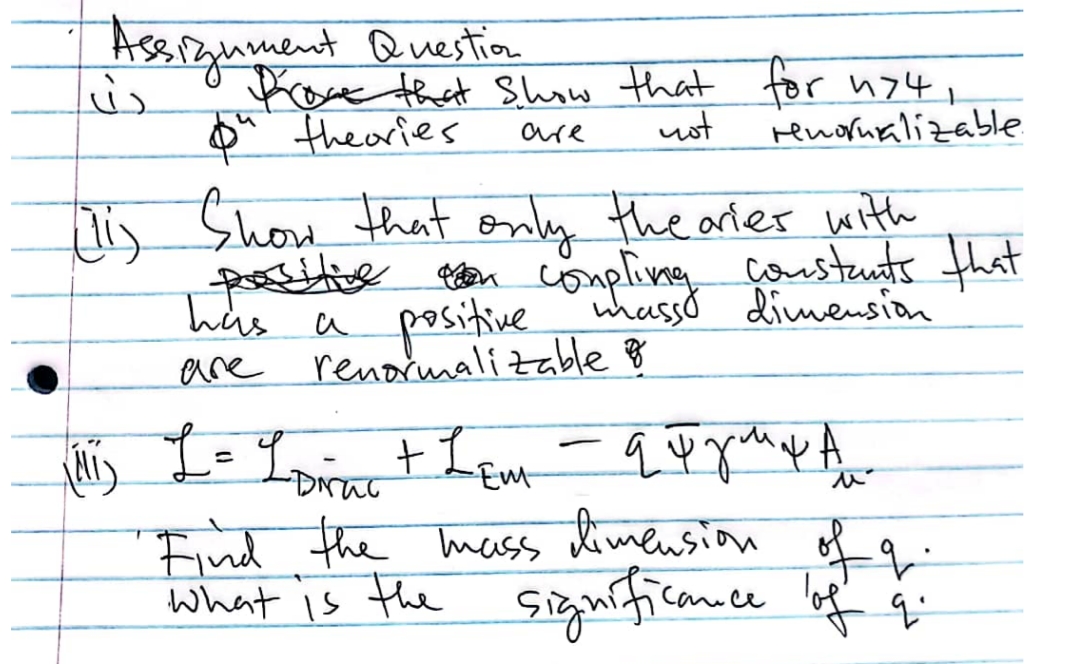 Assignment Question
(i) Prove that Show that for n>4,
ϕⁿ theories are not renormalizable.
(ii) Show that only theories with
positive coupling constants that
has a positive mass dimension
are renormalizable
(iii) ℒ = ℒ_Dirac + ℒ_EM − q ψ̄ γ^μ ψ A_μ.
Find the mass dimension of q.
What is the significance of q.